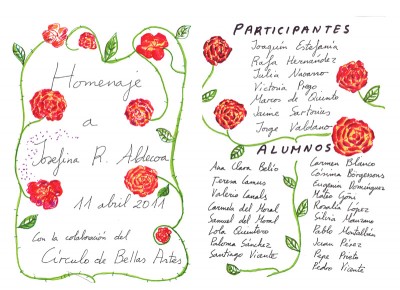 Homenaje
a
Josefina R. Aldecoa
11 abril 2011
Con la colaboración del
Círculo de Bellas Artes
PARTICIPANTES
Joaquín Estefanía
Rafa Hernández
Julia Navarro
Victoria Prego
Marcos de Quinto
Jaime Sartorius
Jorge Valdano
ALUMNOS
Ana Clara Belío
Teresa Camus
Valerio Canals
Carmela del Moral
Samuel del Moral
Lola Quintero
Paloma Sánchez
Santiago Vicente
Carmen Blanco
Corsina Borgessons
Eugenia Domínguez
Mateo Goñi
Rosalía López
Silvia Manzano
Pablo Montalbán
Juan Pérez
Pepe Prieto
Pedro Vicente